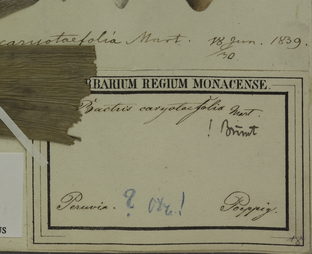 caryotaefolia Mart. 18 Jun. 1839.
30
RBARIUM REGIUM MONACENSE.
Bactris caryotaefolia Mart.
! Burret
Peruvia. ? ! Poeppig.
US